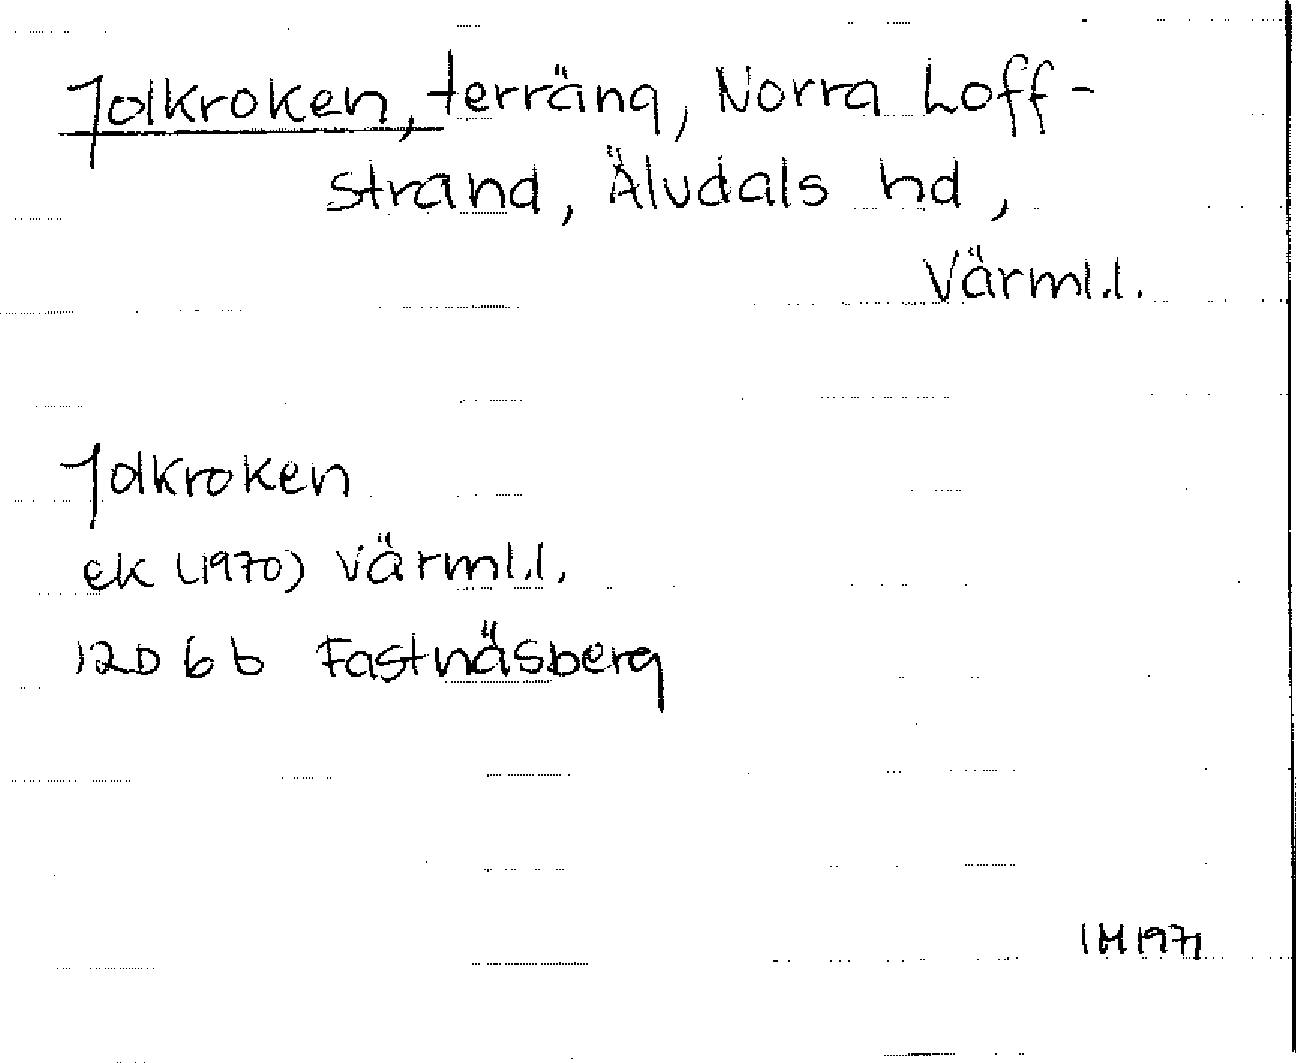 Jolkroken, terräng, Norra Loff-
strand, Älvdals hd,
Värml.l.
Jolkroken
ek (1970) Värml.l.
12D 6b Fastnäsberg
IM 1971